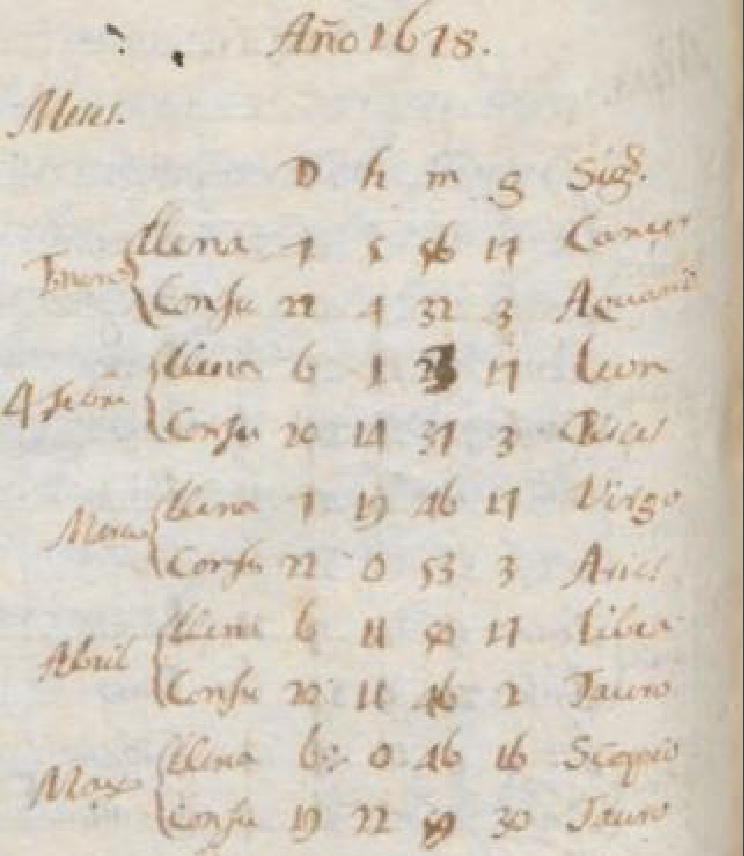 Año 1678.
Meses.
D h m g Sigs.
Enero Llena 7 5 56 17 Cancer
Conju 22 4 32 3 Aquario
4 Febre Llena 6 1 17 Leon
Conju 20 14 37 3 Piscis
Marzo Llena 7 19 46 17 Virgo
Conju 22 0 53 3 Aries
Abril Llena 6 11 50 17 Libra
Conju 20 11 46 2 Tauro
Mayo Llena 6 0 46 16 Scorpio
Conju 19 22 59 30 Tauro